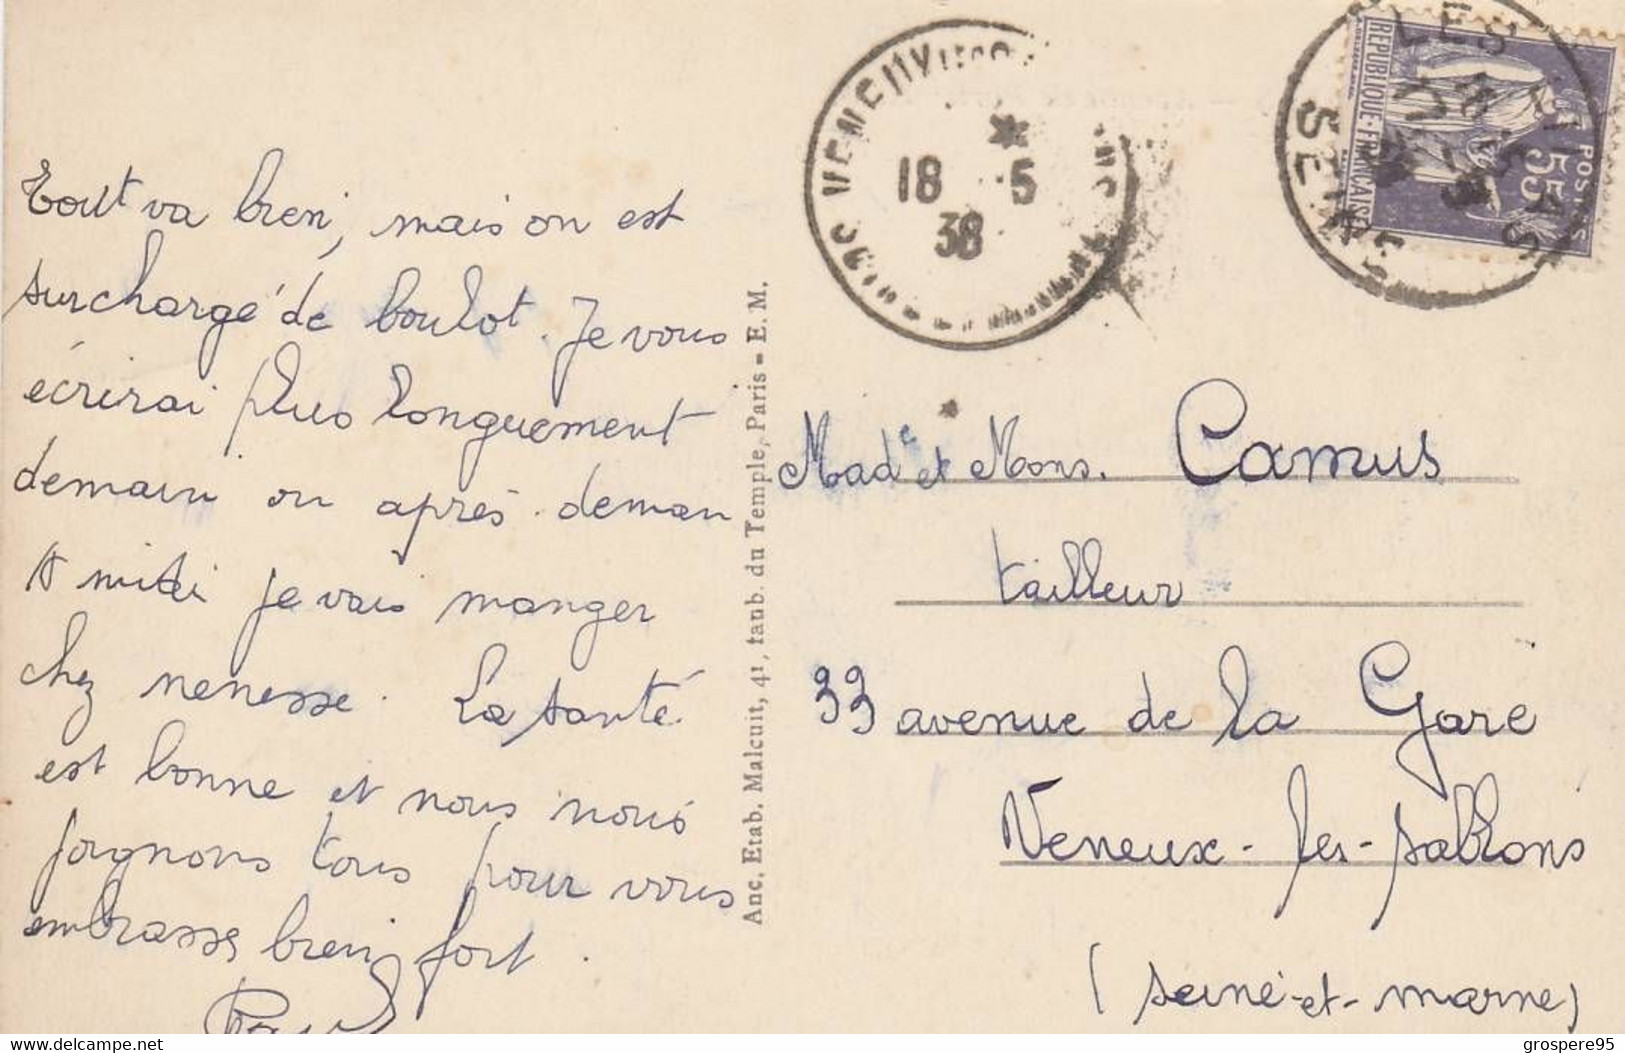 Tout va bien, mais on est
surchargé de boulot. Je vous
écrirai plus longuement
demain ou après-deman
A midi je vais manger
chez nenesse. La santé
est bonne et nous nous
joignons tous pour vous
embrasser bien fort.
Paul
Anc. Etab. Malcuit, 41, faub. du Temple, Paris - E. M.
18 5
38
LES
SEINE
REPUBLIQUE FRANÇAISE
POSTES
55
Made et Mons. Camus
tailleur
33 avenue de la Gare
Veneux-les-sablons
(seine-et-marne)
delcampe.net
grospere95